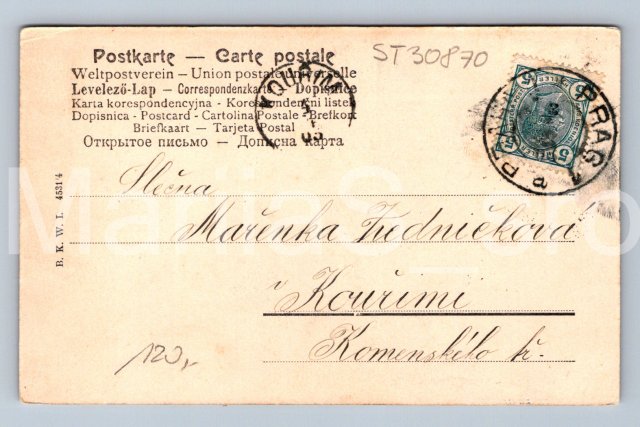 ST30870
Postkarte — Carte postale
Weltpostverein — Union postale universelle
Levelező-Lap — Correspondenzkarte — Dopisnice
Karta korespondencyjna - Korespondenčni listek
Dopisnica - Postcard - Cartolina Postale - Brefkort
Briefkaart — Tarjeta Postal
Открытое письмо — Дописна карта
KOUŘIM
PRAG 1
B. K. W. I. 4531/4
Slečna
Mařenka Ředničkova
v Kouřimi
Komenského tř.
120,-